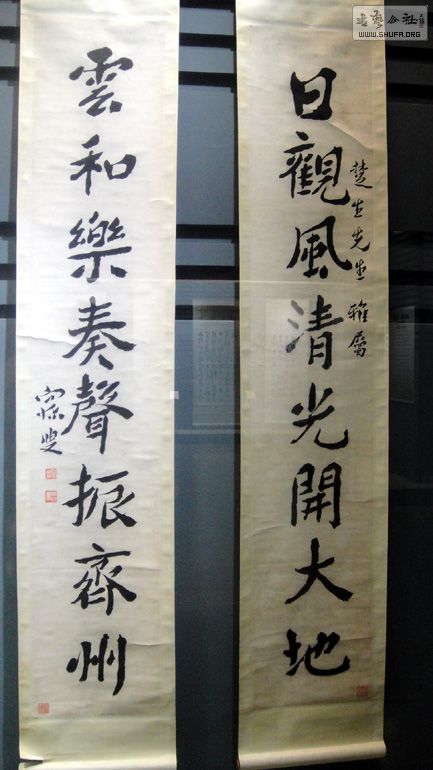 書藝公社
WWW.SHUFA.ORG
日觀風清光開大地
楚生先生雅屬
雲和樂奏聲振齊州
寐叟